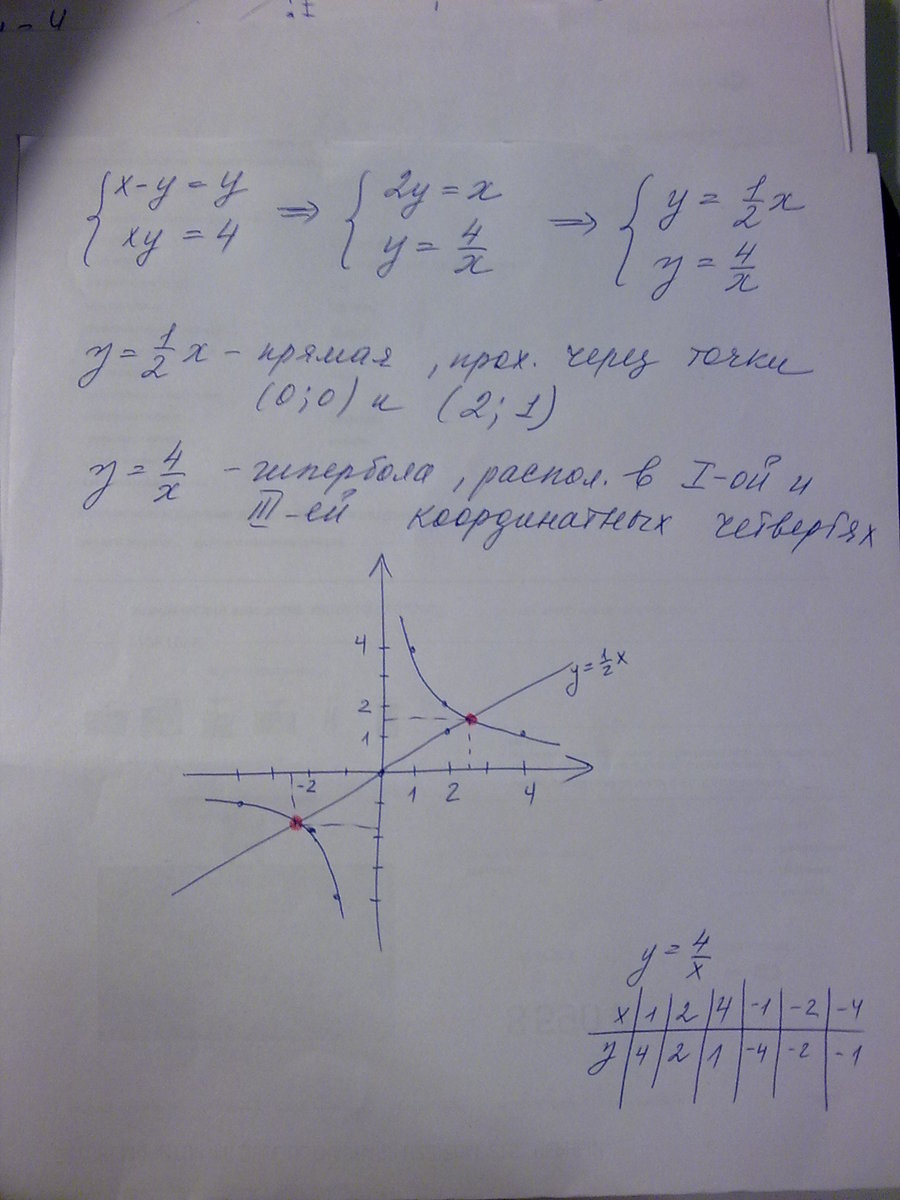 - 4
{ x-y = y   xy = 4 ⇒ { 2y = x   y = 4/x ⇒ { y = 1/2 x   y = 4/x
y = 1/2 x - прямая, прох. через точки
(0;0) и (2;1)
y = 4/x - гипербола, распол. в I-ой и
III-ей координатных четвертях
4
y=1/2x
2
1
-2 1 2 4
y = 4/x
x 1 2 4 -1 -2 -4
y 4 2 1 -4 -2 -1